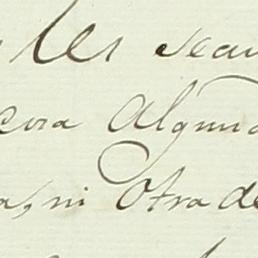 les sean
cora alguna
as, ni otra de